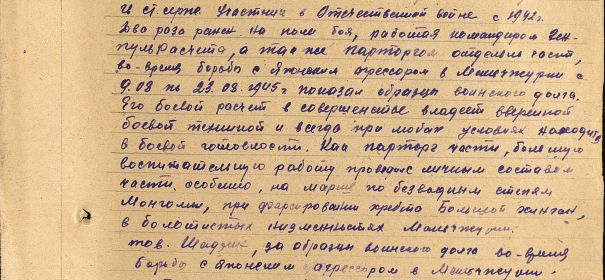 И ст. серж. Участник в Отечественной войне с 1942 г.
Два раза ранен на поле боя, работая командиром
пульрасчета, а также парторгом отдельн. части,
во-время борьбы с Японским агрессором в Манчжурии с
9.08 по 23.08.1945 г. показал образцы воинского долга.
Его боевой расчет в совершенстве владеет вверенной
боевой техникой и всегда при любых условиях находится
в боевой готовности. Как парторг части, большую
воспитательную работу проводит с личным составом
части. особенно, на марше по безводным степям
Монголии, при форсировании хребта Большой Хинган,
в болотистых низменностях Манчжурии.
тов. за образцы воинского долга во-время
борьбы с Японским агрессором в Манчжурии.